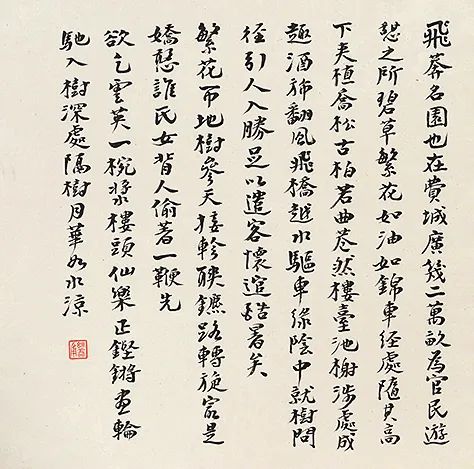 飛莽名園也在費城廣袤二萬畝為官民遊
憇之所碧草繁花如油如錦車徑處隨其高
下夾植喬松古柏若曲巷然樓臺池榭涉處成
趣酒斾翻風飛橋趂水驅車綠陰中就樹問
徑引人入勝足以遣客懷逭酷暑矣
繁花布地樹參天接軫聯鑣路轉旋最是
嬌憨誰氏女背人偷著一鞭先
欲乞雲英一椀漿樓頭仙樂正鏗鏘畫輪
馳入樹深處隔樹月華如水涼